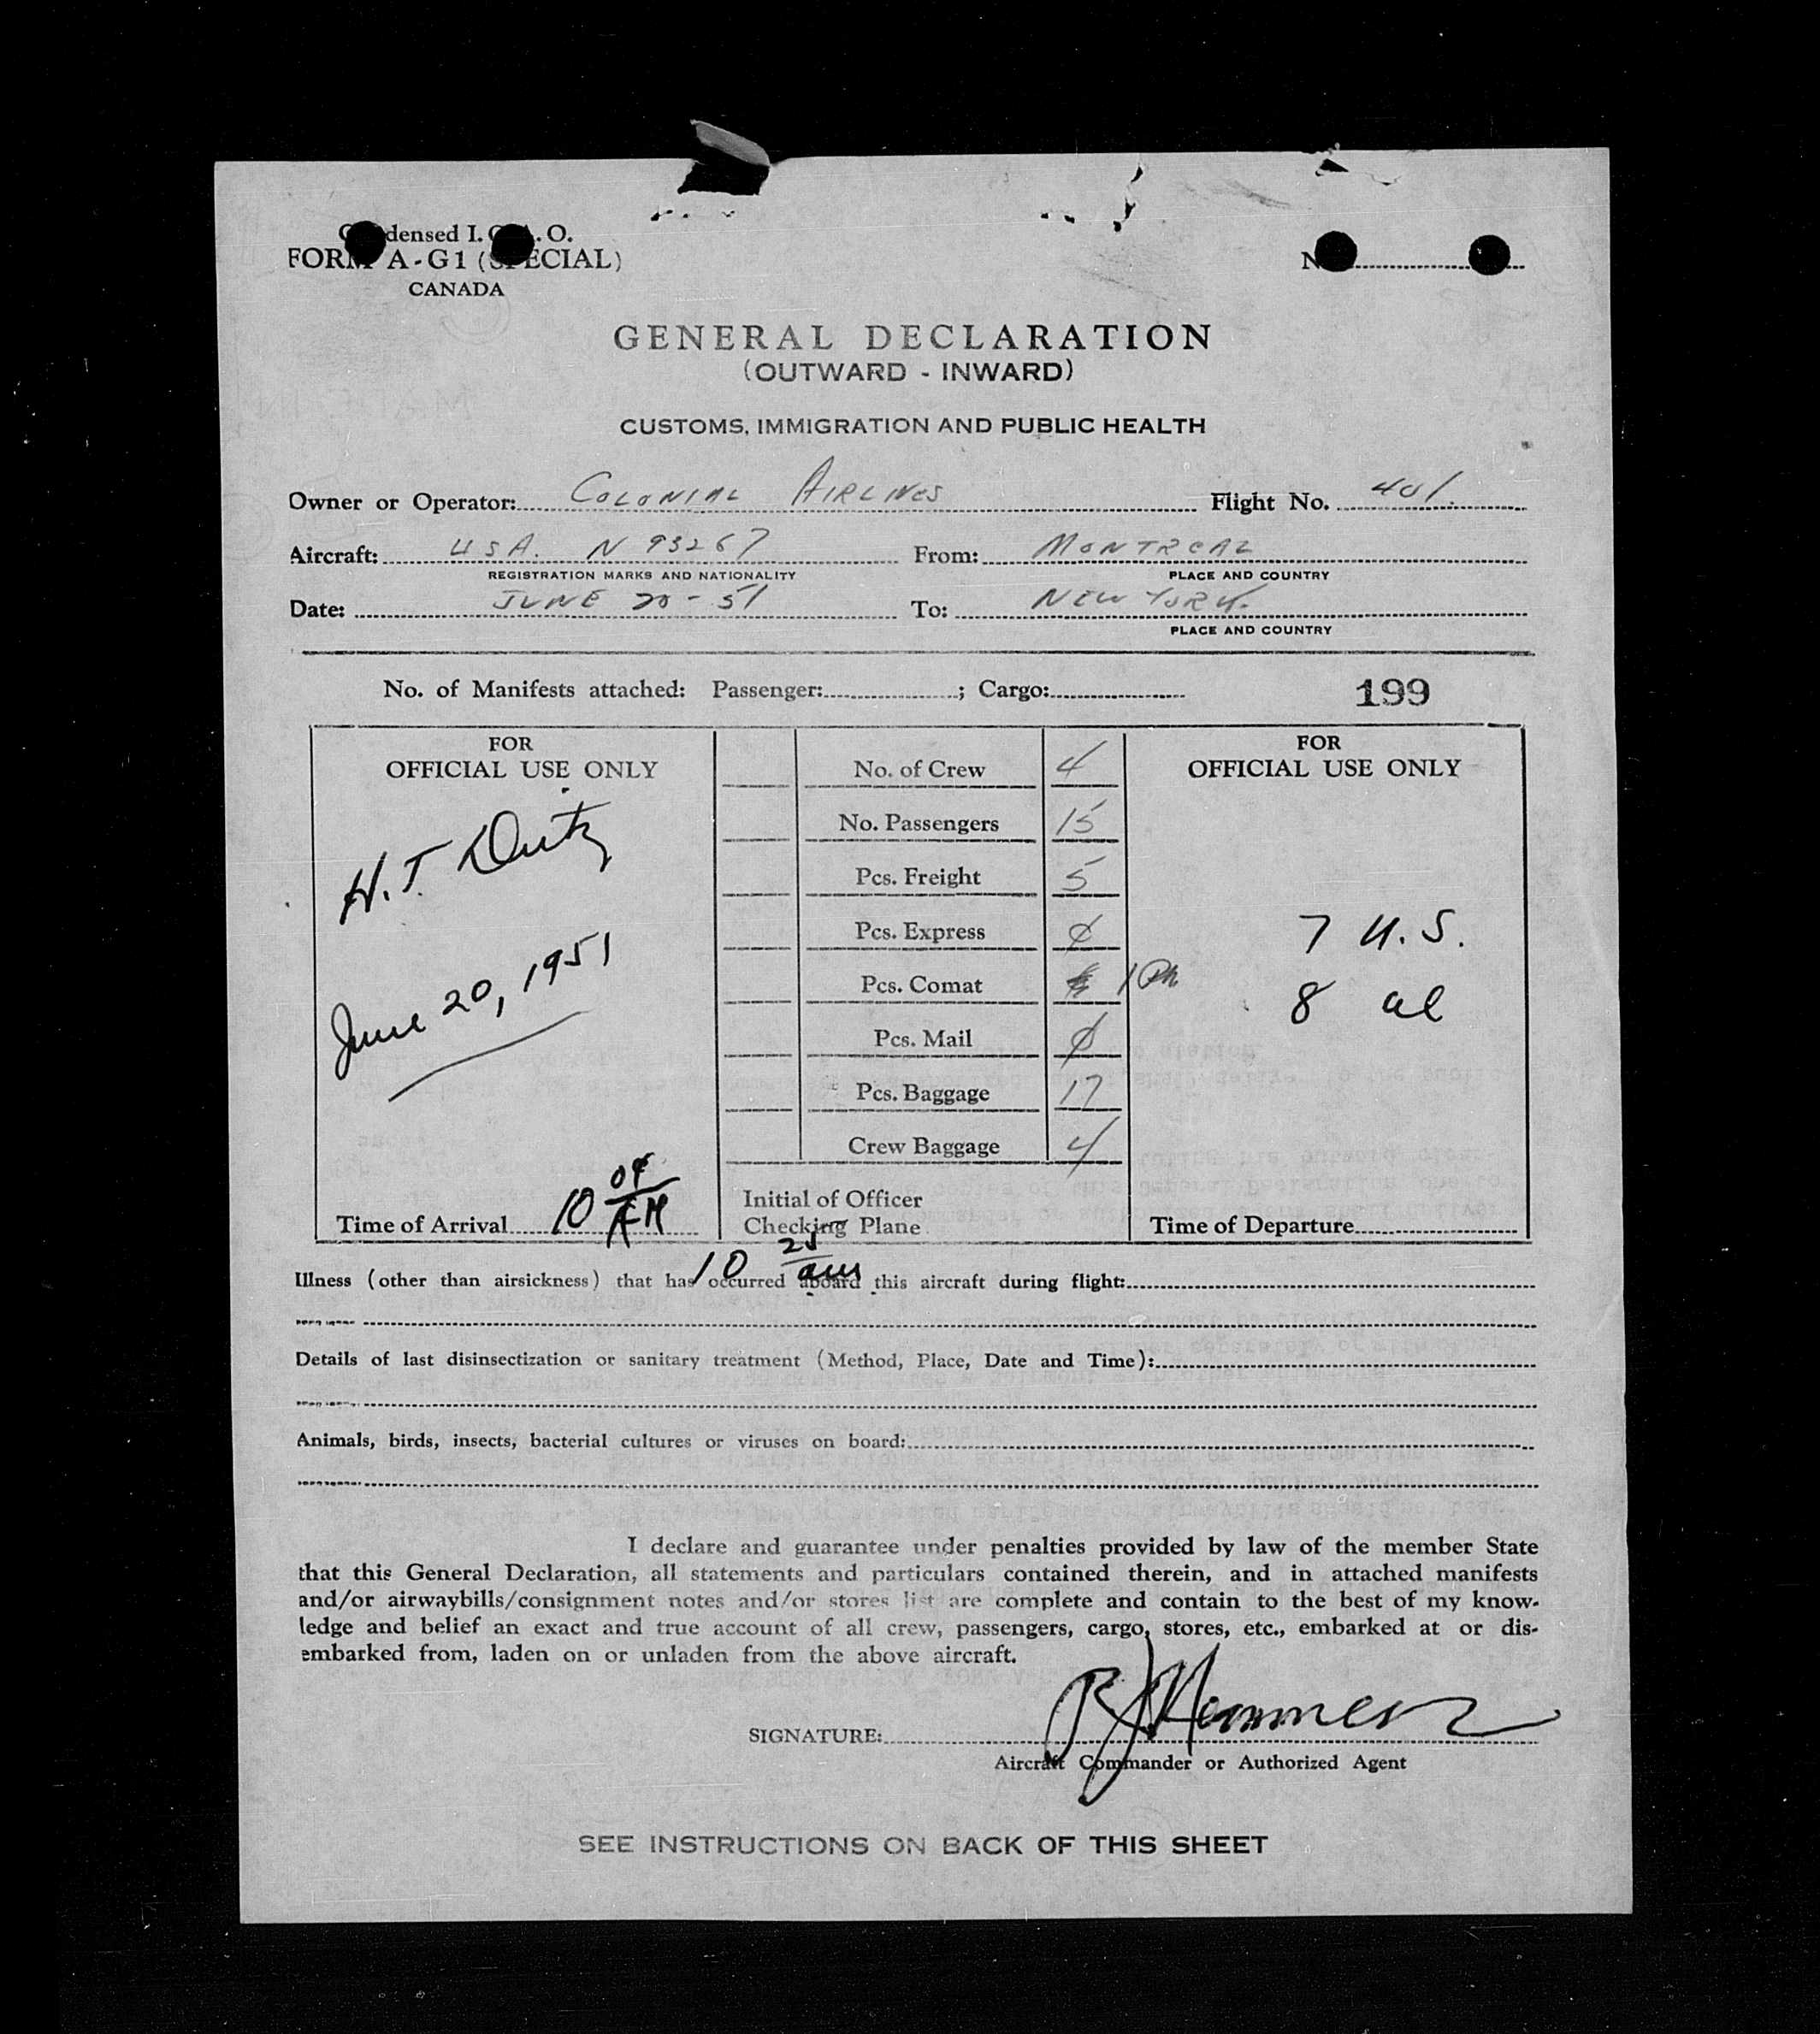 Condensed I.C.A.O.
FORM A-G1 (SPECIAL)
CANADA
GENERAL DECLARATION
(OUTWARD - INWARD)
CUSTOMS, IMMIGRATION AND PUBLIC HEALTH
Owner or Operator: COLONIAL AIRLINES Flight No. 401
Aircraft: USA. N 93267 From: MONTREAL
REGISTRATION MARKS AND NATIONALITY PLACE AND COUNTRY
Date: JUNE 20-51 To: NEW YORK.
PLACE AND COUNTRY
No. of Manifests attached: Passenger: ; Cargo: 199
FOR
OFFICIAL USE ONLY
H.T.
June 20, 1951
Time of Arrival 10 AM
No. of Crew 4
No. Passengers 15
Pcs. Freight 5
Pcs. Express 0
Pcs. Comat 1
Pcs. Mail 0
Pcs. Baggage 17
Crew Baggage 4
Initial of Officer
Checking Plane
10 25 am
FOR
OFFICIAL USE ONLY
7 U.S.
8 al
Time of Departure
Illness (other than airsickness) that has occurred aboard this aircraft during flight:
Details of last disinsectization or sanitary treatment (Method, Place, Date and Time):
Animals, birds, insects, bacterial cultures or viruses on board:
I declare and guarantee under penalties provided by law of the member State
that this General Declaration, all statements and particulars contained therein, and in attached manifests
and/or airwaybills/consignment notes and/or stores list are complete and contain to the best of my know-
ledge and belief an exact and true account of all crew, passengers, cargo, stores, etc., embarked at or dis-
embarked from, laden on or unladen from the above aircraft.
SIGNATURE:
Aircraft Commander or Authorized Agent
SEE INSTRUCTIONS ON BACK OF THIS SHEET